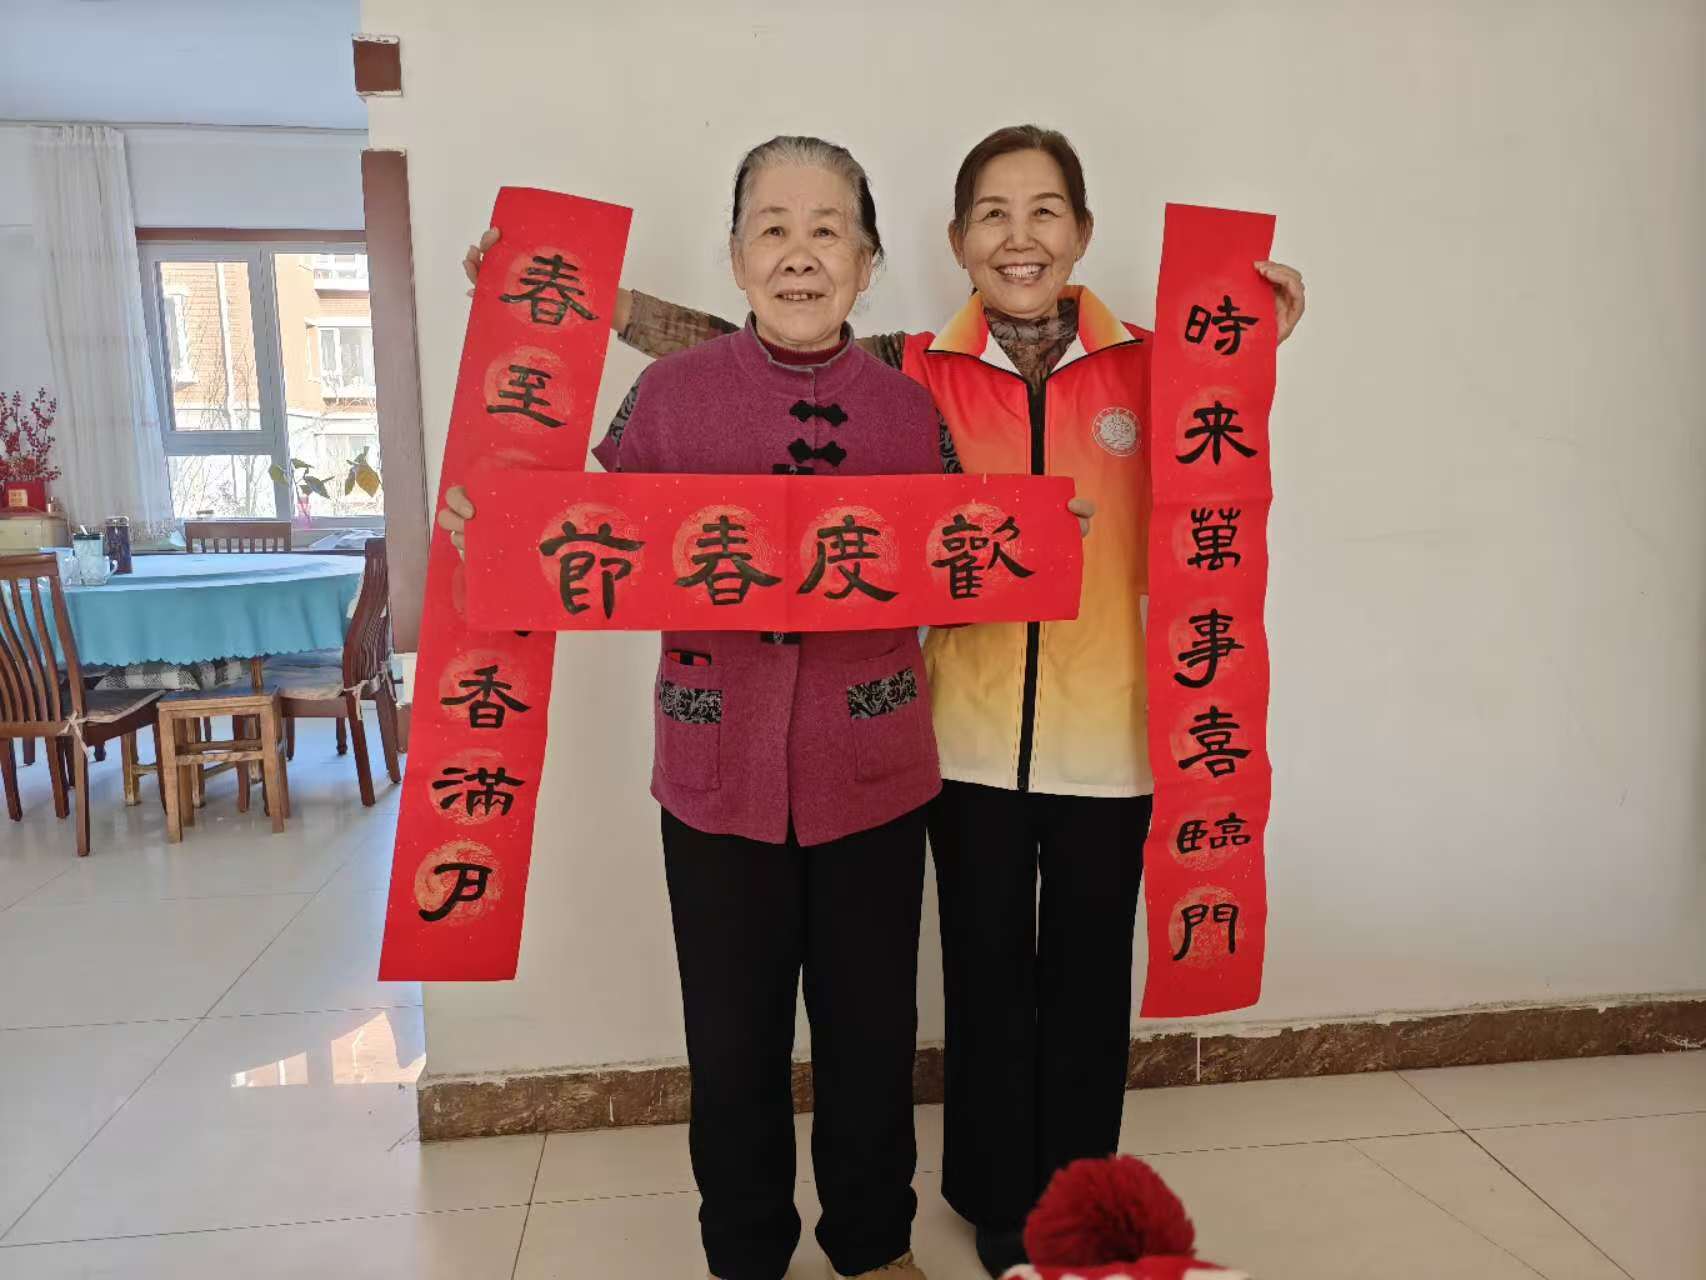 春至香滿户
時来萬事喜臨門
歡度春節